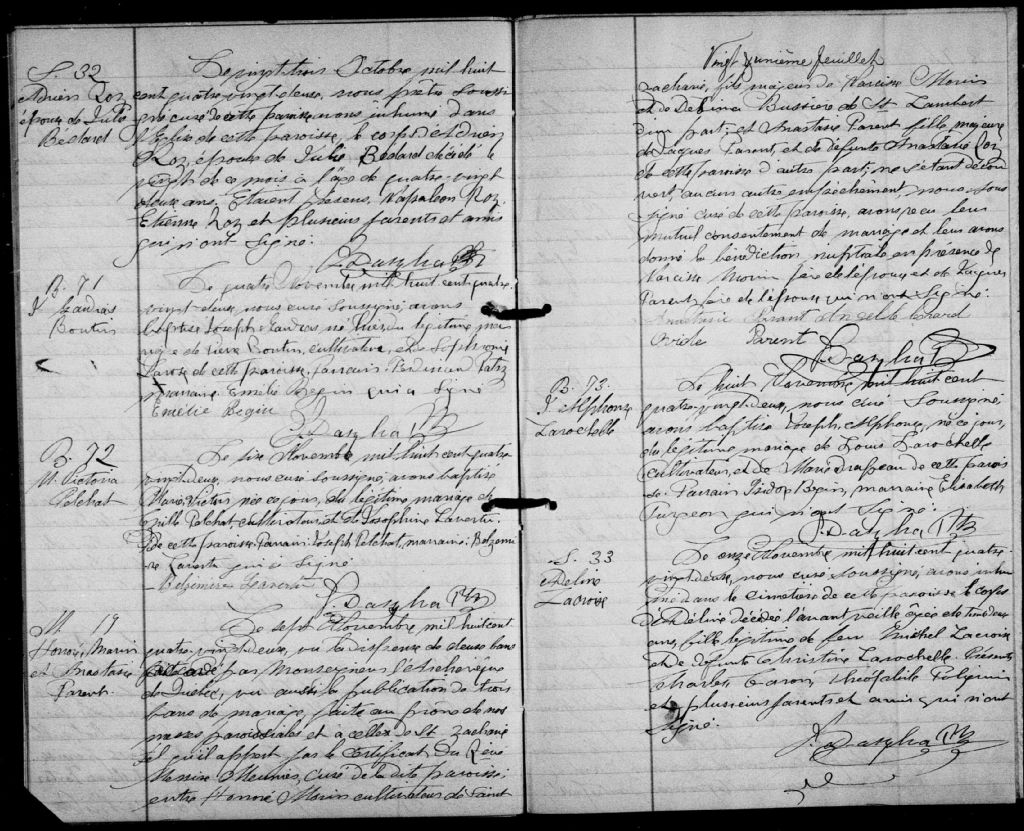 S. 32
Adrien Roz
époux de Julie
Bédard
Le vingt trois Octobre mil huit
cent quatre vingt deux, nous prêtre Soussi
gné curé de cette paroisse avons inhumé dans
l'Eglise de cette paroisse, le corps d'Adrien
Roz, époux de Julie Bédard décédé le
vingt de ce mois à l'âge de quatre vingt
deux ans. Etaient présens, Napoléon Roz
Etienne Roz et plusieurs parents et amis
qui n'ont signé.
J. Dazylva Ptr
B. 71
J. Gaudias
Boutin
Le quatre Novembre mil huit cent quatre
vingt deux, nous curé Soussigné, avons
baptisé Joseph Gaudias, né hier, du légitime ma
riage de Boutin, cultivateur, et de Sophronie
Larose de cette paroisse. Parrain: Ferdinand
marraine Emélie Begin qui a signé
Emélie Begin
J. Dazylva Ptr
B. 72
M. Victoria
Pelchat
Le six Novembre mil huit cent quatre
vingt deux, nous curé soussigné, avons baptisé
Marie, née ce jour, du légitime mariage de
Pelchat, cultivateur, et de Josephine Lavertu
De cette paroisse. Parrain: Joseph Pelchat, marraine: Belzemi
re Lavertu qui a signé
Belzémire Lavertu
J. Dazylva Ptr
M 19
Honoré Morin
et Anastasie
Parent.
Le sept Novembre mil huit cent
quatre vingt deux, vu la dispense de deux bans
par Monseigneur l'Archevêque
de Québec, vu aussi la publication de trois
bans de mariage faite au prône de nos
messes paroissiales et à celles de St Zacharie
tel qu'il appert par le certificat du Révd
Messire Meunier, Curé de la dite paroisse;
entre Honoré Morin cultivateur de Saint
Vingt unième feuillet
Zacharie, fils majeur de Narcisse Morin
et de Delvina Bussière de St. Lambert
d'une part; et Anastasie Parent fille majeure
de Jaques Parent, et de defunte Anastasie Roz
de cette paroisse d'autre part; ne s'étant décou
vert, aucun autre empêchement, nous Sous
signé curé de cette paroisse, avons reçu leur
mutuel consentement de mariage et leur avons
donné la bénédiction nuptiale en présence de
Narcisse Morin père de l'époux et de Jaques
Parent, père de l'épouse qui n'ont signé.
Parent
J. Dazylva Ptr
B. 73.
J. Alphonse
Larochelle
Le huit Novembre, mil huit cent
quatre-vingt deux, nous curé Soussigné,
avons baptisé Joseph, Alphonse, né ce jour,
du légitime mariage de Louis Larochelle
cultivateur, et de Marie Drapeau de cette parois
se. Parrain Isidore Begin, marraine Elisabeth
Turgeon qui n'ont signé.
J. Dazylva Ptr
S. 33
Adeline
Lacroix
Le onze Novembre mil huit cent quatre-
vingt deux, nous curé soussigné, avons inhu
mé dans le cimetière de cette paroisse le corps
d'Adéline décédée l'avant veille âgée de vingt deux
ans, fille légitime de feu Michel Lacroix
et de défunte Christine Larochelle. Présents
Charles Caron, Théophile
et plusieurs parents et amis qui n'ont
signé.
J. Dazylva Ptr